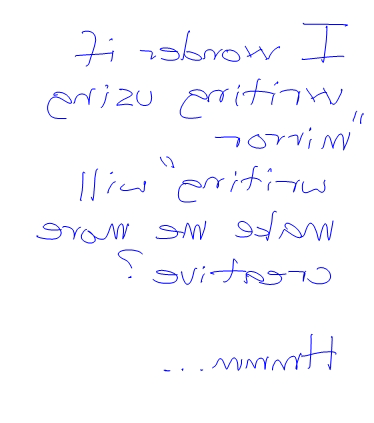 I wonder if
writing using
"mirror
writing" will
make me more
creative?
Hmmm...